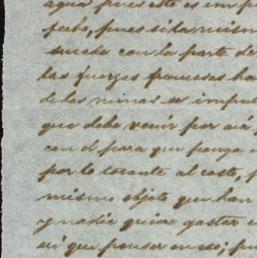 agua pues este es imp
pecho, pues si la mism
sucede con la parte de
las fuerzas francesas ha
de las minas es impul
que debe venir por acá,
con el para que ponga e
por lo tocante al costo, p
mismo objeto que han
y nadie quiere gastar e
ni que pensar en eso; pu